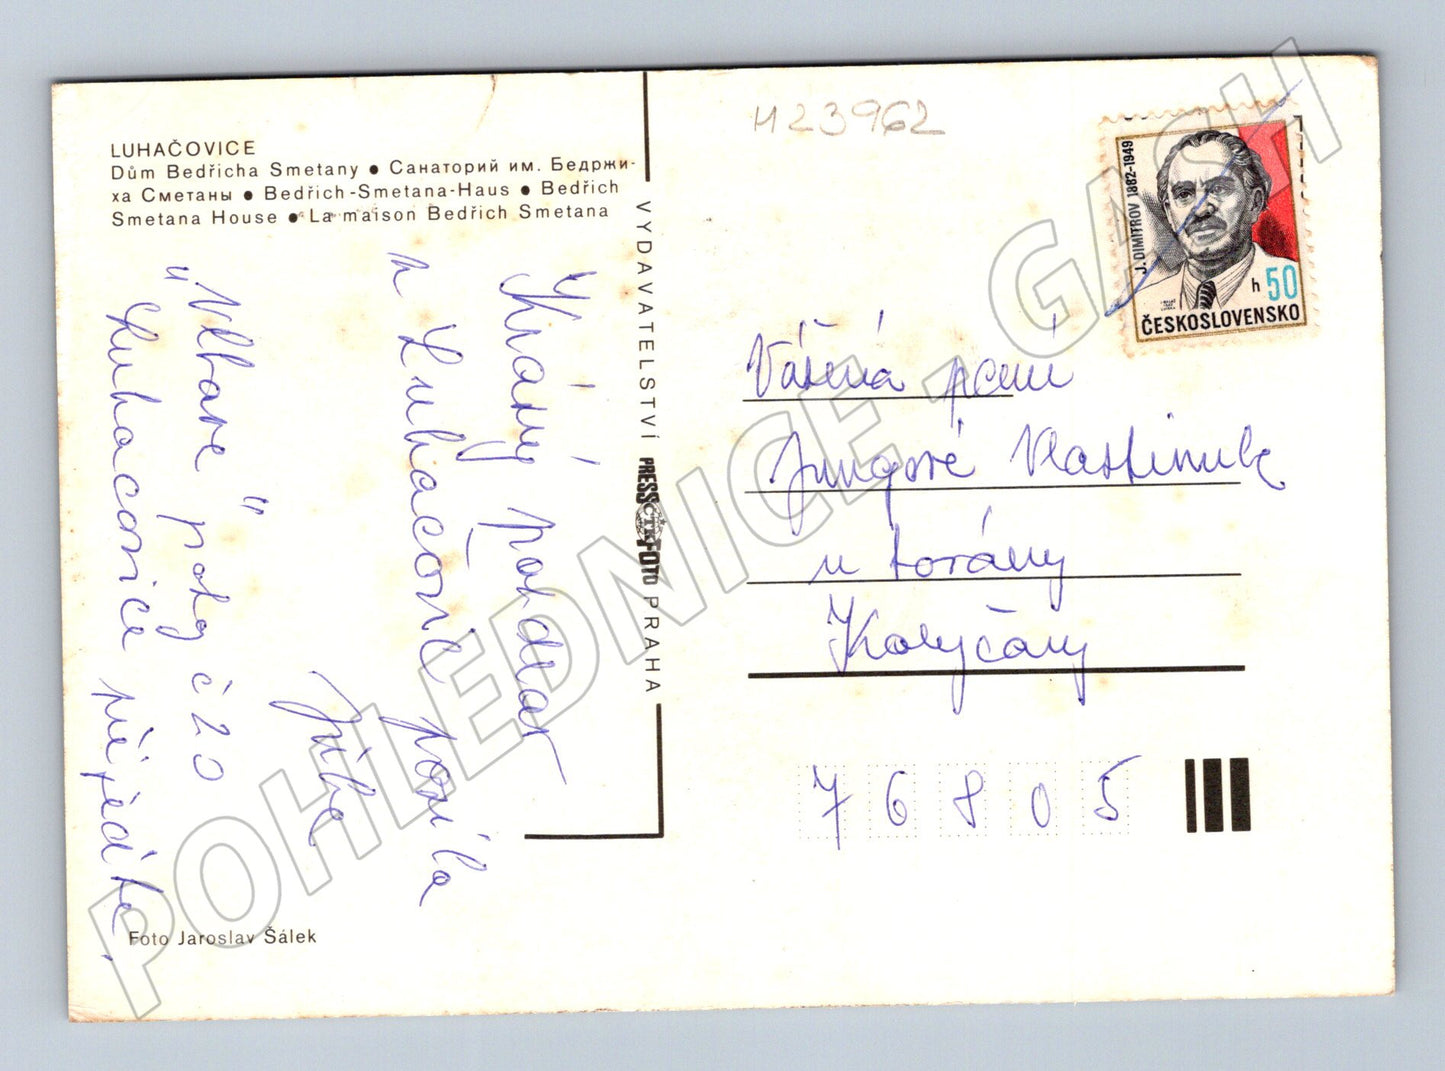 LUHAČOVICE
Dům Bedřicha Smetany ● Санаторий им. Бедржи-
ха Сметаны ● Bedřich-Smetana-Haus ● Bedřich
Smetana House ● La maison Bedřich Smetana
Krásný pozdrav
z Luhačovic posílá
Jiřka
"Vltava" pokoj č 20
Luhacovice
Foto Jaroslav Šálek
VYDAVATELSTVÍ PRESSFOTO PRAHA
ČTK
H23962
J. DIMITROV 1882-1949
h 50
ČESKOSLOVENSKO
Vážená paní
Jungová Vlastimila
u továrny
Koryčany
76805
POHLEDNICE - GASH